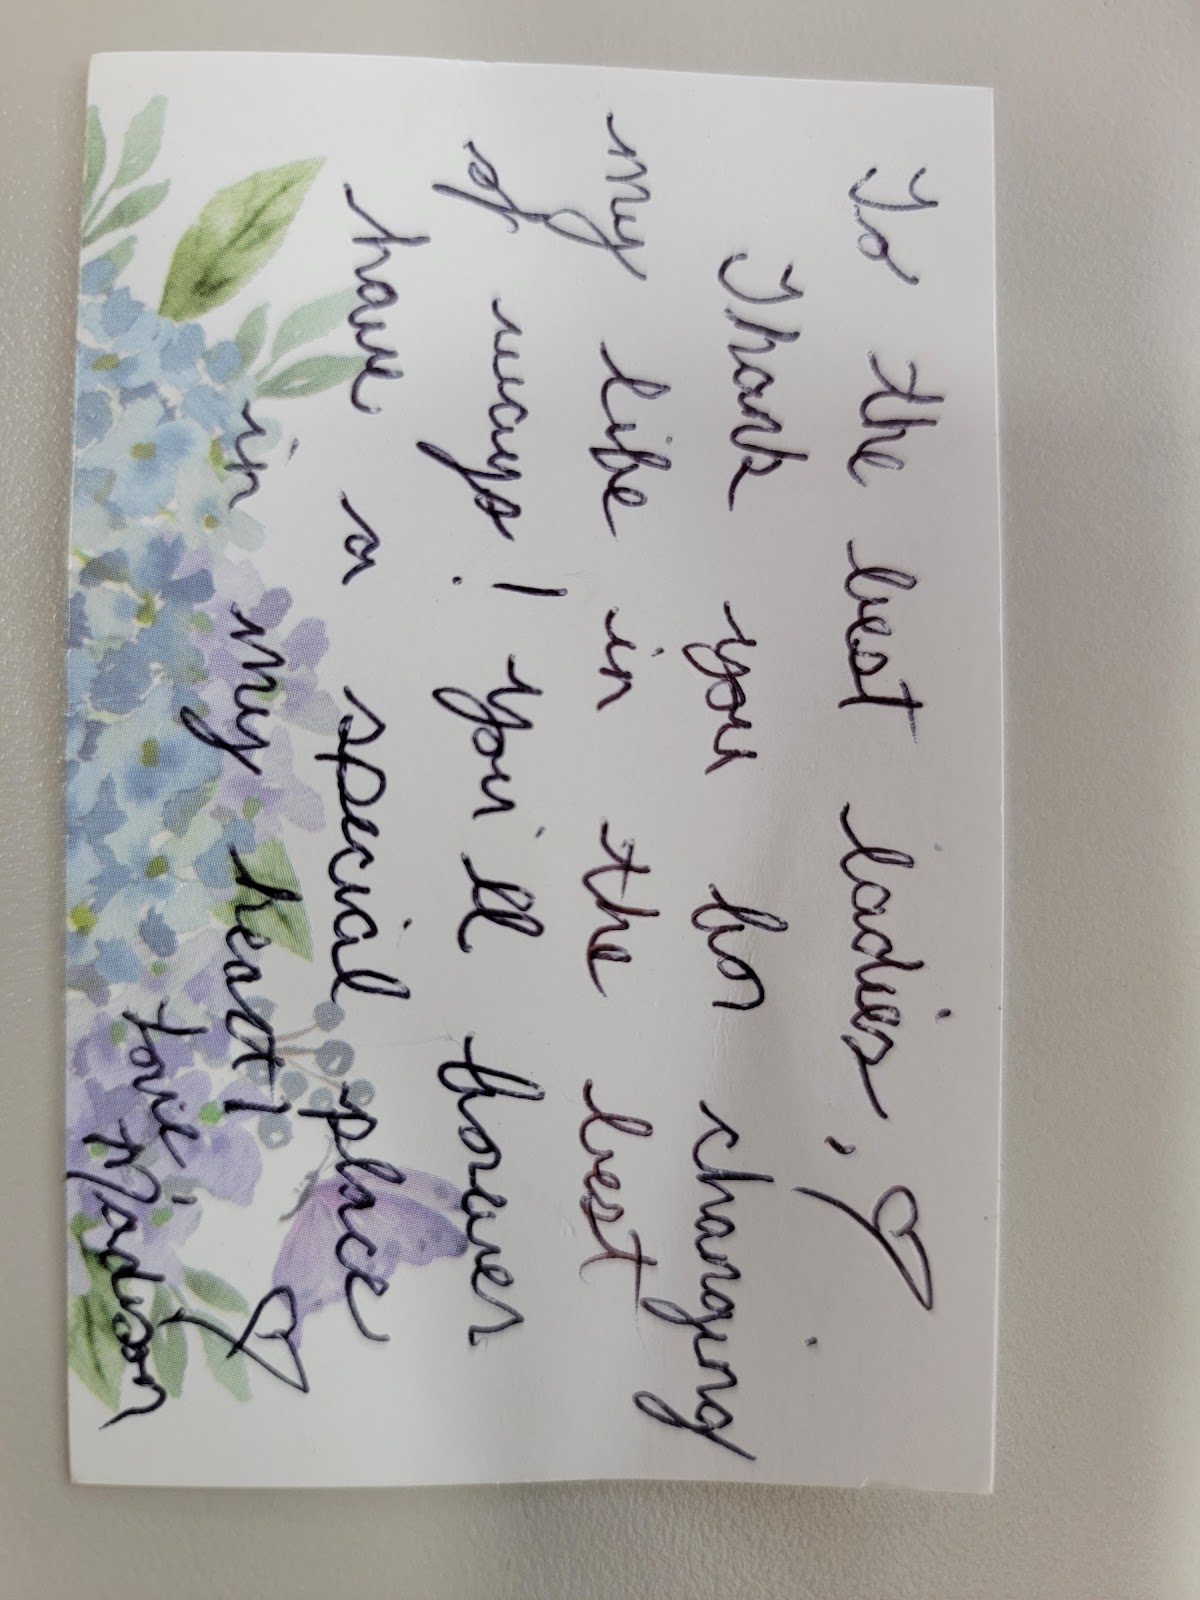 To the best ladies, ♡
Thank you for changing
my life in the best
of ways! you'll forever
have a special place
in my heart! ♡
Love, Madison